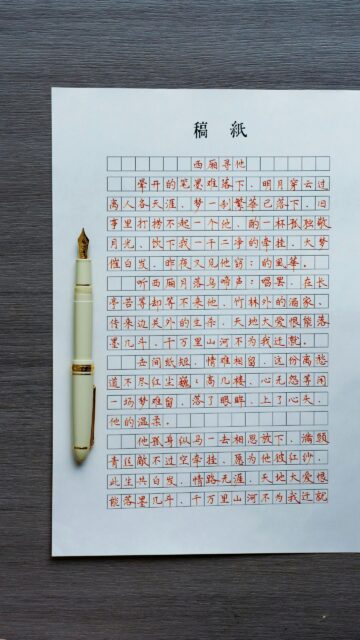 稿 紙
西厢寻他
晕开的笔墨难落下、明月穿云过
离人各天涯、梦一刹繁华已落下、旧
事里打捞不起一个他、酌一杯孤独敬
月光、饮下我一干二净的牵挂、大梦
催白发、昨夜又见他窈、的风华。
听西厢月落乌啼声、唱罢、在长
亭苦等却等不来他、竹林外的酒家、
传来边关外的生杀、天地大爱恨能落
墨几斗、千万里山河不为我迁就。
去间纸短、情难相留、这份离愁
道不尽红尘、高几楼、心无怨等闲
一场梦难留、落了眼眸、上了心头、
他的温柔。
他孤身纵马一去相思放下、满头
青丝敵不过空牵挂、愿为他披红纱、
此生共白发、情路无涯、天地大爱恨
能落墨几斗、千万里山河不为我迁就